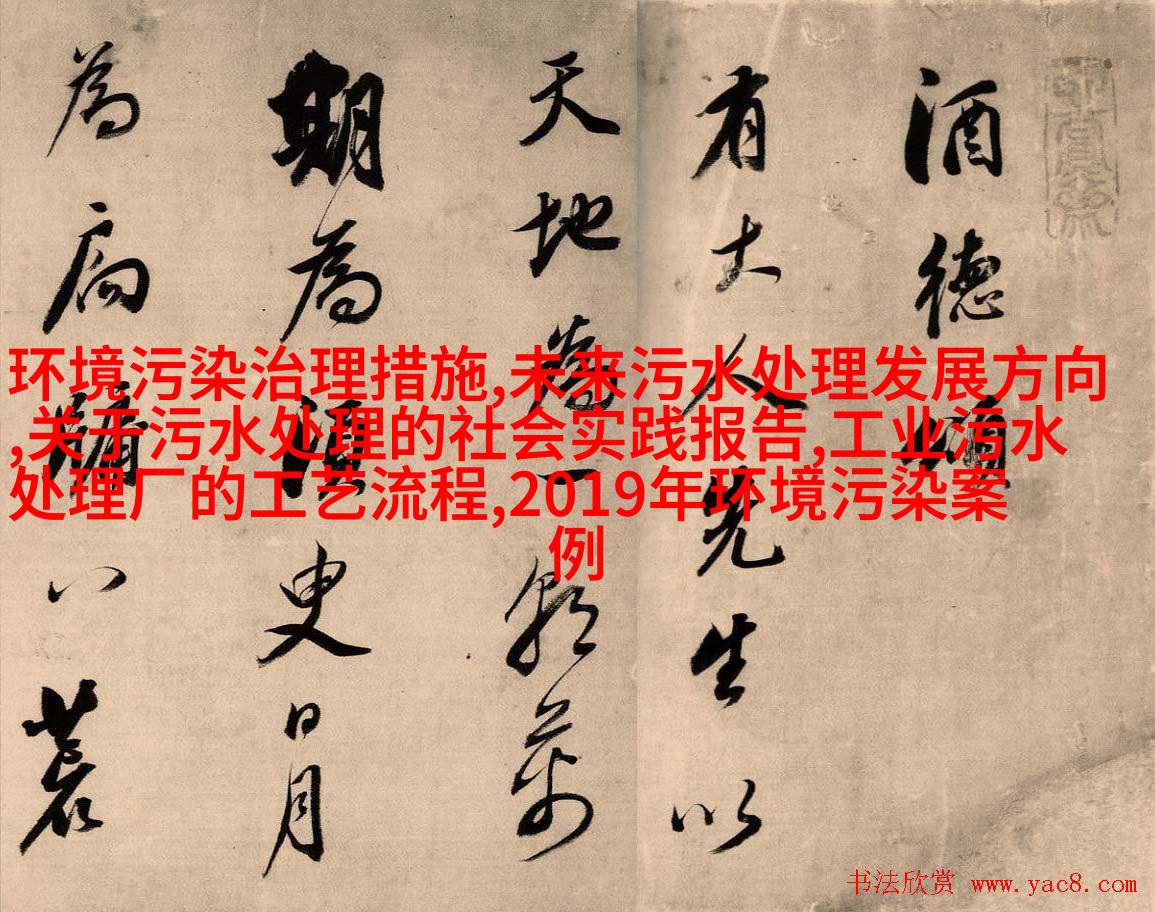 酒德頌
有大人先生以
天地為一朝萬
期為須臾日月
為扃牖八荒
环境污染治理措施,未来污水处理发展方向
,关于污水处理的社会实践报告,工业污水
处理厂的工艺流程,2019年环境污染案
例
书法欣赏 www.yac8.com